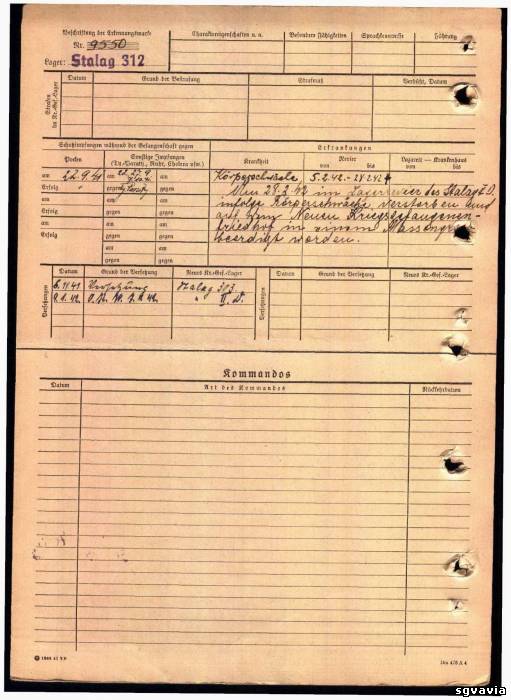 Beschriftung der Erkennungsmarke
Nr. 9550
Lager: Stalag 312
Charaktereigenschaften u. a.
Besondere Fähigkeiten
Sprachkenntnisse
Führung
Strafen im Kr.-Gef.-Lager
Datum
Grund der Bestrafung
Strafmaß
Verbüßt, Datum
Schutzimpfungen während der Gefangenschaft gegen
Pocken
Sonstige Impfungen
(Ty.-Paraty., Ruhr, Cholera usw.)
am 22.9.41 am
Erfolg gegen
am am
Erfolg gegen
am am
Erfolg gegen
am am
Erfolg gegen
am
gegen
Erkrankungen
Krankheit
Revier
von bis
Lazarett — Krankenhaus
von bis
Körperschwäche 5.2.42.-28.2.42
Am 28.2.42 im Lagerrevier des Stalag II D,
infolge Körperschwäche verstorben und
auf dem Neuen Kriegsgefangenen-
friedhof in einem Massengrab
beerdigt worden.
Versetzungen
Datum
Grund der Versetzung
Neues Kr.-Gef.-Lager
6.11.41 Versetzung Stalag 303
Versetzungen
Datum
Grund der Versetzung
Neues Kr.-Gef.-Lager
Kommandos
Datum
Art des Kommandos
Rückkehrdatum
Din 476 A 4
sgvavia